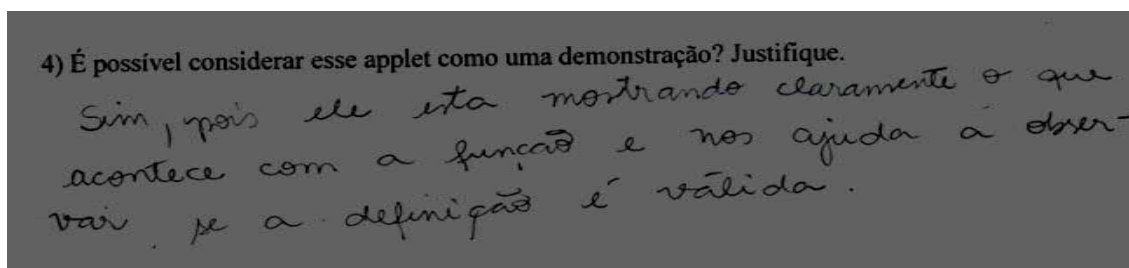 4) É possível considerar esse applet como uma demonstração? Justifique.
Sim, pois ele esta mostrando claramente o que
acontece com a função e nos ajuda a obser-
var se a definição é válida.